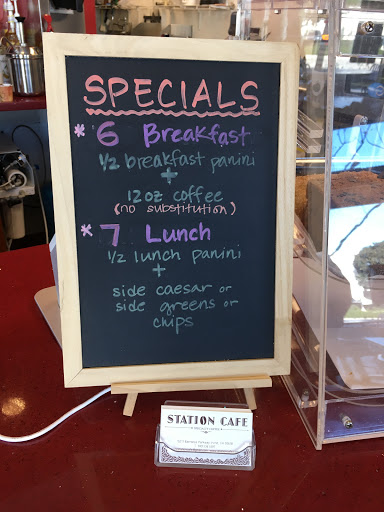 SPECIALS
*6 Breakfast
1/2 breakfast panini
+
12oz coffee
(no substitution)
*7 Lunch
1/2 lunch panini
+
side caesar or
side greens or
chips
STATION CAFE